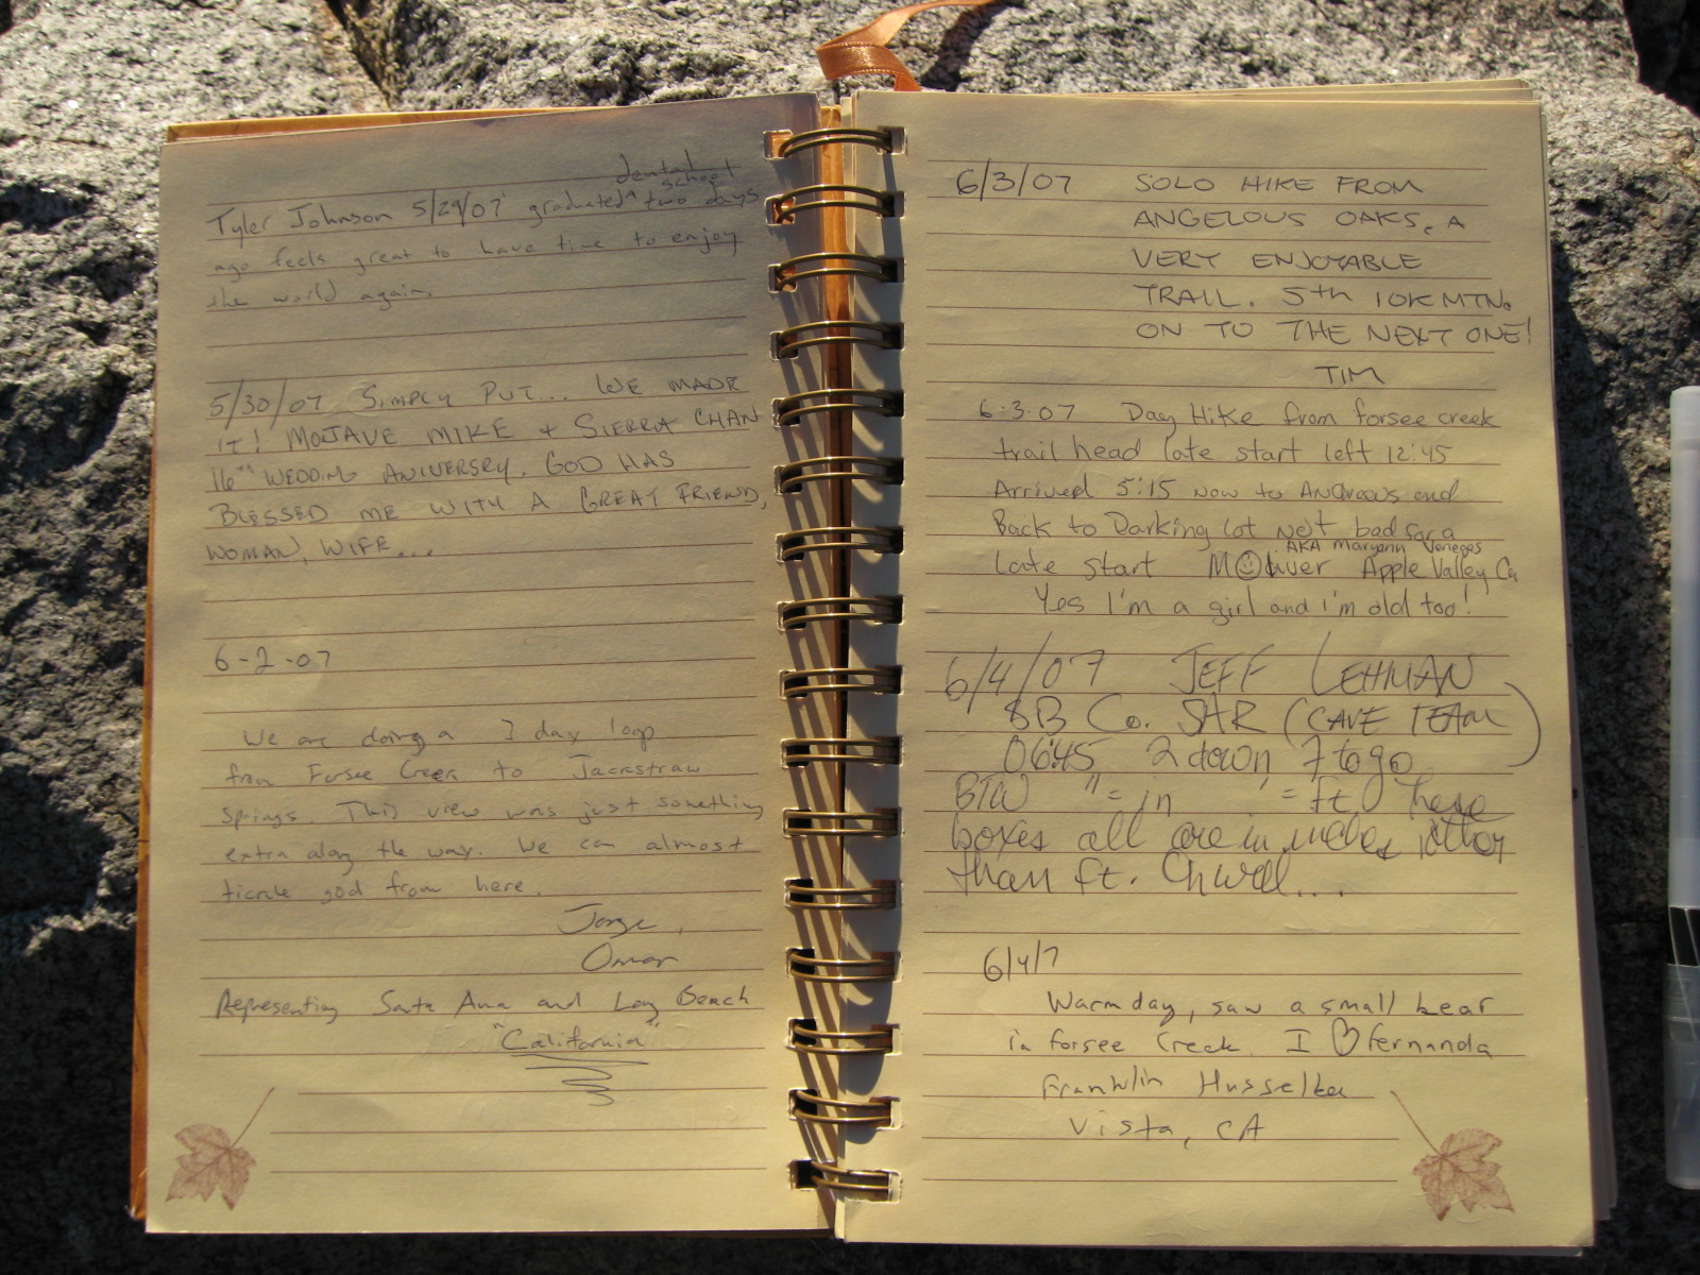 dental
school
Tyler Johnson 5/29/07 graduated ^ two days
ago feels great to have time to enjoy
the world again.
5/30/07 SIMPLY PUT... WE MADE
IT! MOJAVE MIKE + SIERRA CHAN
16th WEDDING ANIVERSRY. GOD HAS
BLESSED ME WITH A GREAT FRIEND,
WOMAN, WIFE...
6-2-07
We are doing a 3 day loop
from Forsee Creek to Jackstraw
Springs. This view was just something
extra along the way. We can almost
tickle god from here.
Jorge,
Omar
Representing Santa Ana and Long Beach
"California"
6/3/07 SOLO HIKE FROM
ANGELOUS OAKS. A
VERY ENJOYABLE
TRAIL. 5th 10K MTN.
ON TO THE NEXT ONE!
TIM
6.3.07 Day Hike from forsee creek
trail head late start left 12:45
Arrived 5:15 now to Andrews and
Back to Parking lot not bad for a
AKA Maryann Venegas
Late start Apple Valley Ca
Yes I'm a girl and i'm old too!
6/4/07 JEFF LEHMAN
SB Co. SAR (CAVE TEAM)
0645 2 down 7 to go
BTW " = in ' = ft these
boxes all are in inches rather
than ft. Oh well....
6/4/7
Warm day, saw a small bear
in forsee Creek. I ♡ Fernanda
Franklin
Vista, CA